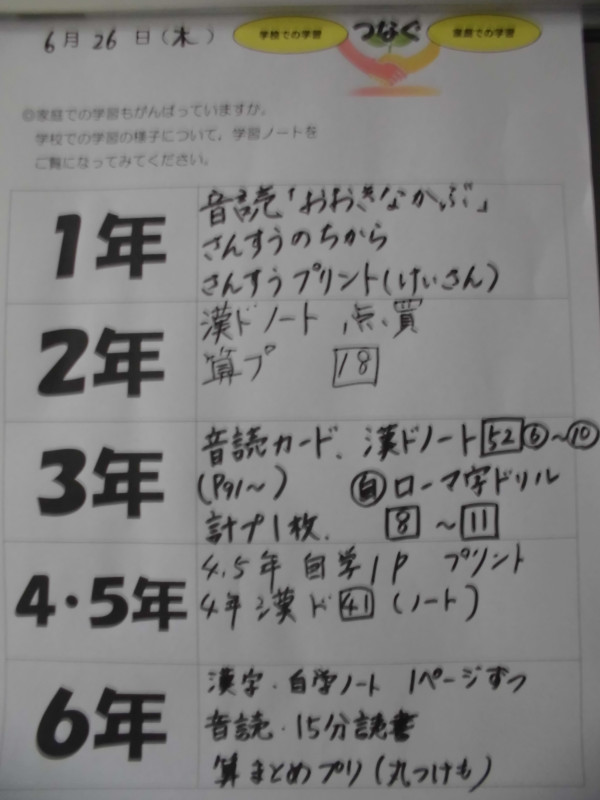 6月26日(木)
学校での学習 つなぐ 家庭での学習
◎家庭での学習もがんばっていますか。
学校での学習の様子について,学習ノートを
ご覧になってみてください。
1年
音読「おおきなかぶ」
さんすうのちから
さんすうプリント(けいさん)
2年
漢ドノート 点、買
算プ 18
3年
音読カード、漢ドノート52⑥~⑩
(P91~) 自 ローマ字ドリル
計プ1枚. 8 ~ 11
4・5年
4.5年 自学1P プリント
4年漢ド41(ノート)
6年
漢字・自学ノート 1ページずつ
音読・15分読書
算まとめプリ(丸つけも)